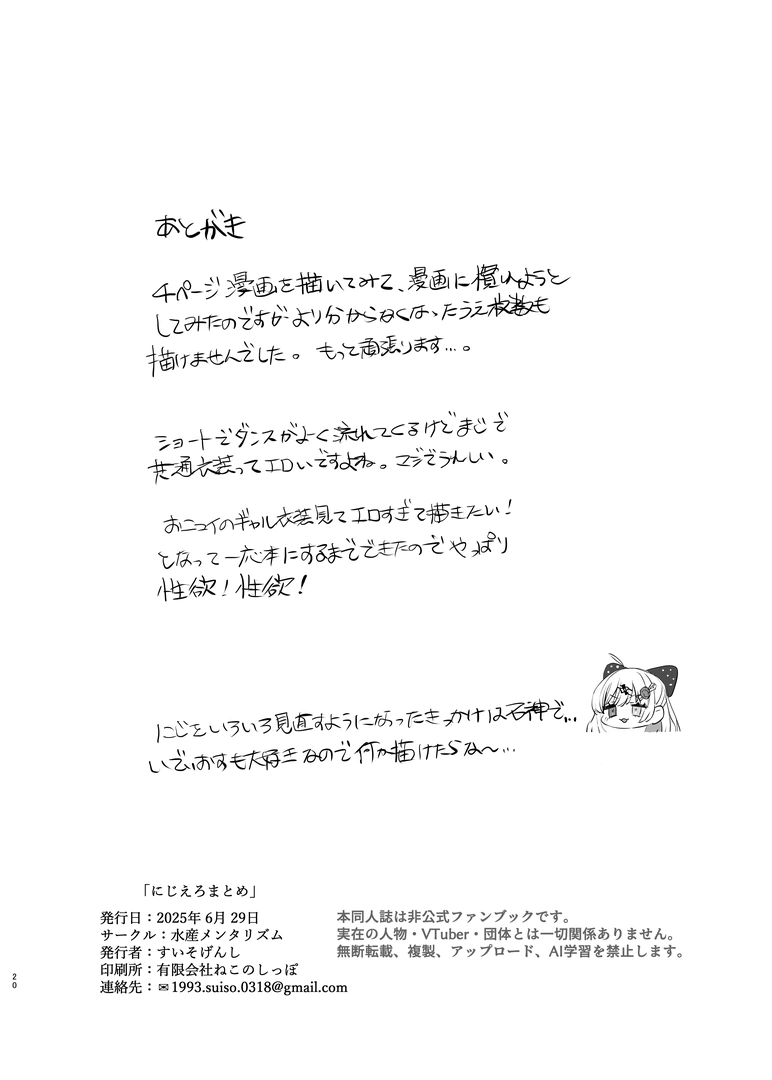 あとがき
4ページ漫画を描いてみて、漫画に慣れようと
してみたのですが より分からなくなったうえ枚数も
描けませんでした。 もって頑張ります…。
ショートでダンスがよく流れてくるけどまじで
共通衣装ってエロいですよね。マジでうれしい。
おニュイのギャル衣装見てエロすぎて描きたい!
となって一応本にするまでできたのでやっぱり
性欲!性欲!
にじをいろいろ見直すようになったきっかけは石神で…
いでぃおすも大好きなので何か描けたらな〜…
「にじえろまとめ」
発行日:2025年 6月 29日
サークル:水産メンタリズム
発行者:すいそげんし
印刷所:有限会社ねこのしっぽ
連絡先:✉1993.suiso.0318@gmail.com
本同人誌は非公式ファンブックです。
実在の人物・VTuber・団体とは一切関係ありません。
無断転載、複製、アップロード、AI学習を禁止します。
20